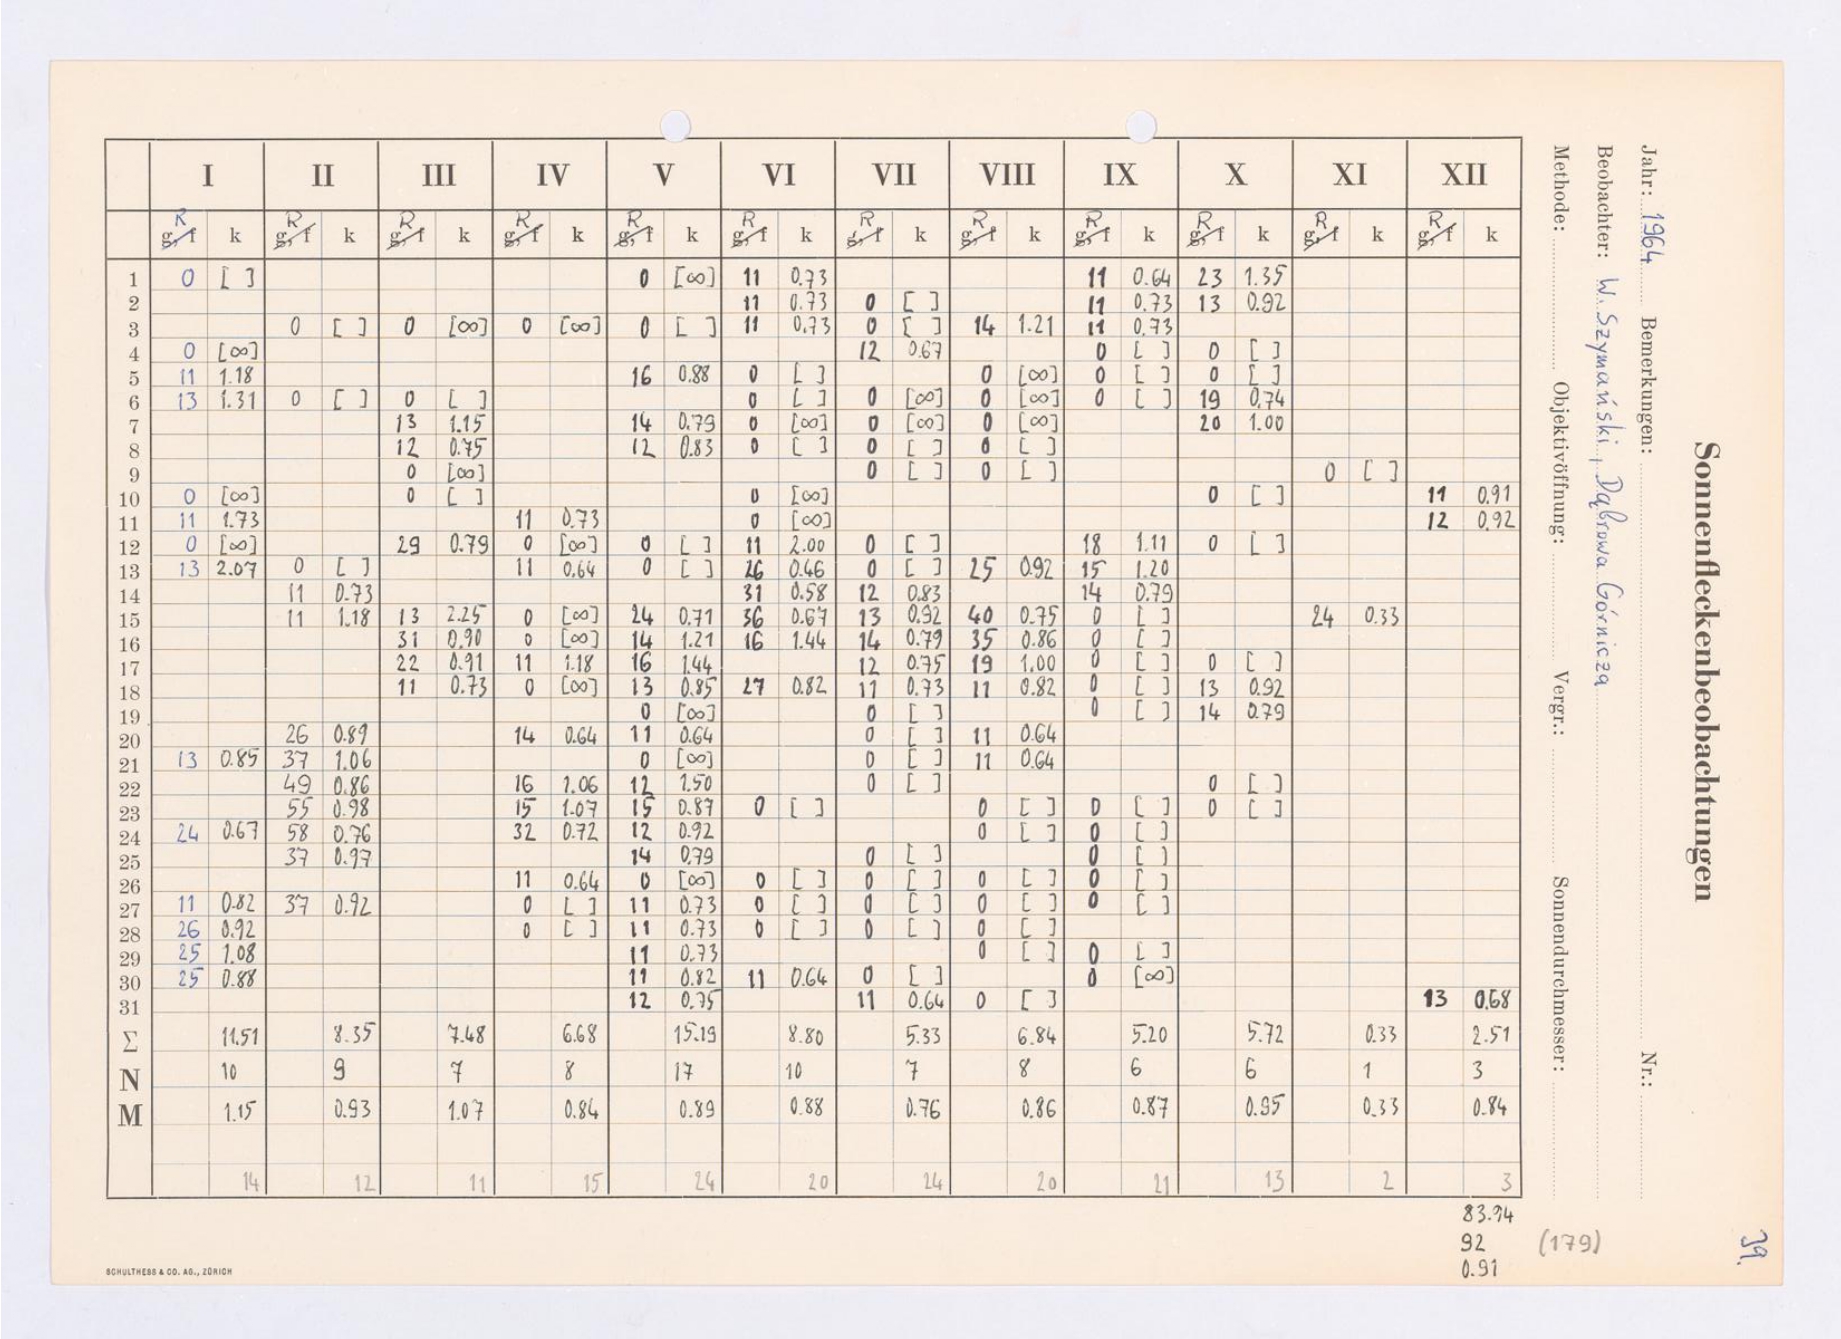 Sonnenfleckenbeobachtungen
Jahr: 1964 Bemerkungen: Nr.:
Beobachter: W. Szymański, Dąbrowa Górnicza
Methode: Objektivöffnung: Vergr.: Sonnendurchmesser:
39
I II III IV V VI VII VIII IX X XI XII
R R R R R R R R R R R R
g, f k g, f k g, f k g, f k g, f k g, f k g, f k g, f k g, f k g, f k g, f k g, f k
1 0 [ ] 0 [∞] 11 0.73 11 0.64 23 1.35
2 11 0.73 0 [ ] 11 0.73 13 0.92
3 0 [ ] 0 [∞] 0 [∞] 0 [ ] 11 0.73 0 [ ] 14 1.21 11 0.73
4 0 [∞] 12 0.67 0 [ ] 0 [ ]
5 11 1.18 16 0.88 0 [ ] 0 [∞] 0 [ ] 0 [ ]
6 13 1.31 0 [ ] 0 [ ] 0 [ ] 0 [∞] 0 [∞] 0 [ ] 19 0.74
7 13 1.15 14 0.79 0 [∞] 0 [∞] 0 [∞] 20 1.00
8 12 0.75 12 0.83 0 [ ] 0 [ ] 0 [ ]
9 0 [∞] 0 [ ] 0 [ ] 0 [ ]
10 0 [∞] 0 [ ] 0 [∞] 0 [ ] 11 0.91
11 11 1.73 11 0.73 0 [∞] 12 0.92
12 0 [∞] 29 0.79 0 [∞] 0 [ ] 11 2.00 0 [ ] 18 1.11 0 [ ]
13 13 2.07 0 [ ] 11 0.64 0 [ ] 26 0.46 0 [ ] 25 0.92 15 1.20
14 11 0.73 31 0.58 12 0.83 14 0.79
15 11 1.18 13 2.25 0 [∞] 24 0.71 36 0.67 13 0.92 40 0.75 0 [ ] 24 0.33
16 31 0.90 0 [∞] 14 1.21 16 1.44 14 0.79 35 0.86 0 [ ]
17 22 0.91 11 1.18 16 1.44 12 0.75 19 1.00 0 [ ] 0 [ ]
18 11 0.73 0 [∞] 13 0.85 27 0.82 11 0.73 11 0.82 0 [ ] 13 0.92
19 0 [∞] 0 [ ] 0 [ ] 14 0.79
20 26 0.89 14 0.64 11 0.64 0 [ ] 11 0.64
21 13 0.85 37 1.06 0 [∞] 0 [ ] 11 0.64
22 49 0.86 16 1.06 12 1.50 0 [ ] 0 [ ]
23 55 0.98 15 1.07 15 0.87 0 [ ] 0 [ ] 0 [ ] 0 [ ]
24 24 0.67 58 0.76 32 0.72 12 0.92 0 [ ] 0 [ ]
25 37 0.97 14 0.79 0 [ ] 0 [ ]
26 11 0.64 0 [∞] 0 [ ] 0 [ ] 0 [ ] 0 [ ]
27 11 0.82 37 0.92 0 [ ] 11 0.73 0 [ ] 0 [ ] 0 [ ] 0 [ ]
28 26 0.92 0 [ ] 11 0.73 0 [ ] 0 [ ] 0 [ ]
29 25 1.08 11 0.73 0 [ ] 0 [ ]
30 25 0.88 11 0.82 11 0.64 0 [ ] 0 [∞]
31 12 0.75 11 0.64 0 [ ] 13 0.68
Σ 11.51 8.35 7.48 6.68 15.19 8.80 5.33 6.84 5.20 5.72 0.33 2.51
N 10 9 7 8 17 10 7 8 6 6 1 3
M 1.15 0.93 1.07 0.84 0.89 0.88 0.76 0.86 0.87 0.95 0.33 0.84
14 12 11 15 24 20 24 20 21 13 2 3
83.94
92 (179)
0.91
SCHULTHESS & CO. AG., ZÜRICH